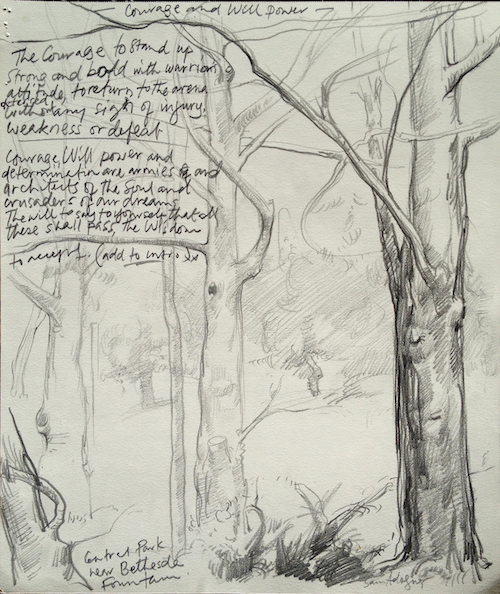 Courage and Will power —
The Courage to stand up
strong and bold with warriors
attitude, to return, to the arena
without any sign of injury.
weakness or defeat
Courage, Will power and
determination are armies of and
architects of the Soul and
crusaders of our dreams
The will to say to yourself that all
these shall pass. The Wisdom
to accept. (add to intro
Central Park
near Bethesda
Fountain.